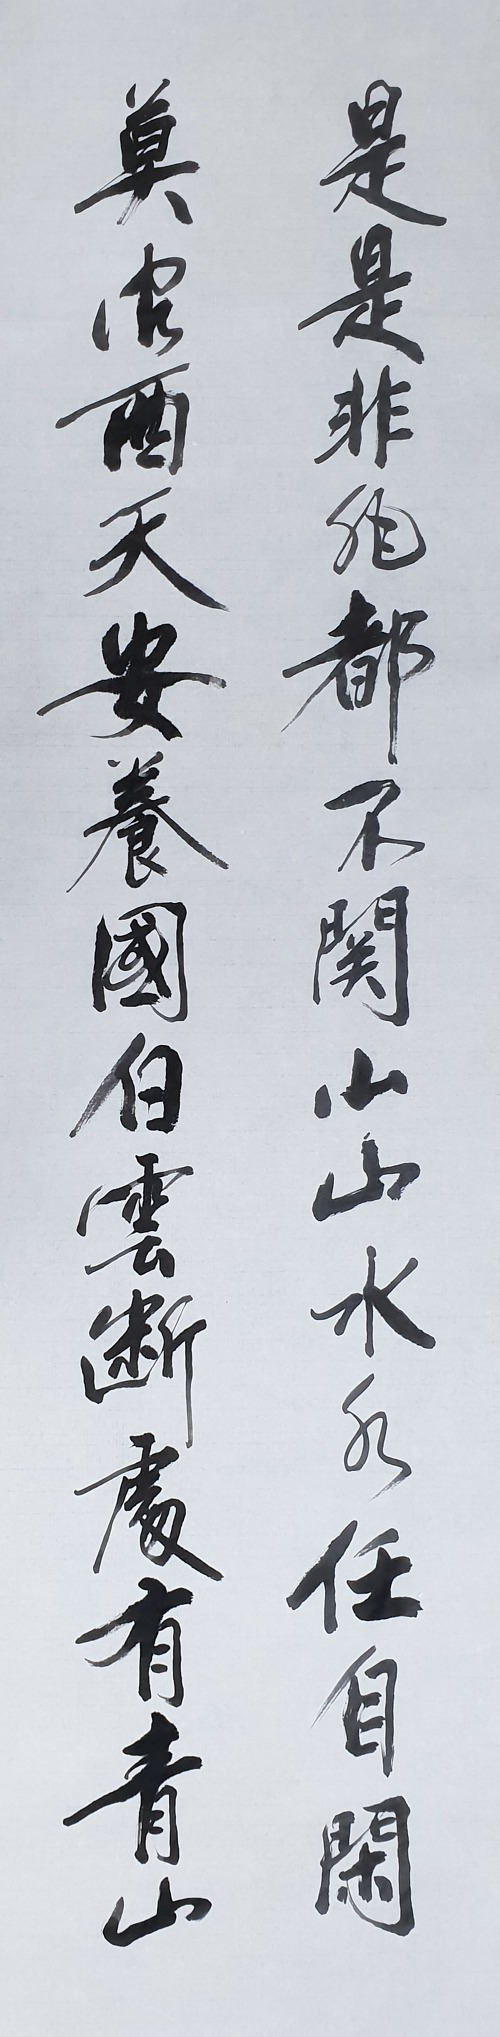 是是非非都不関山山水水任自閑
莫问西天安養國白雲断處有青山